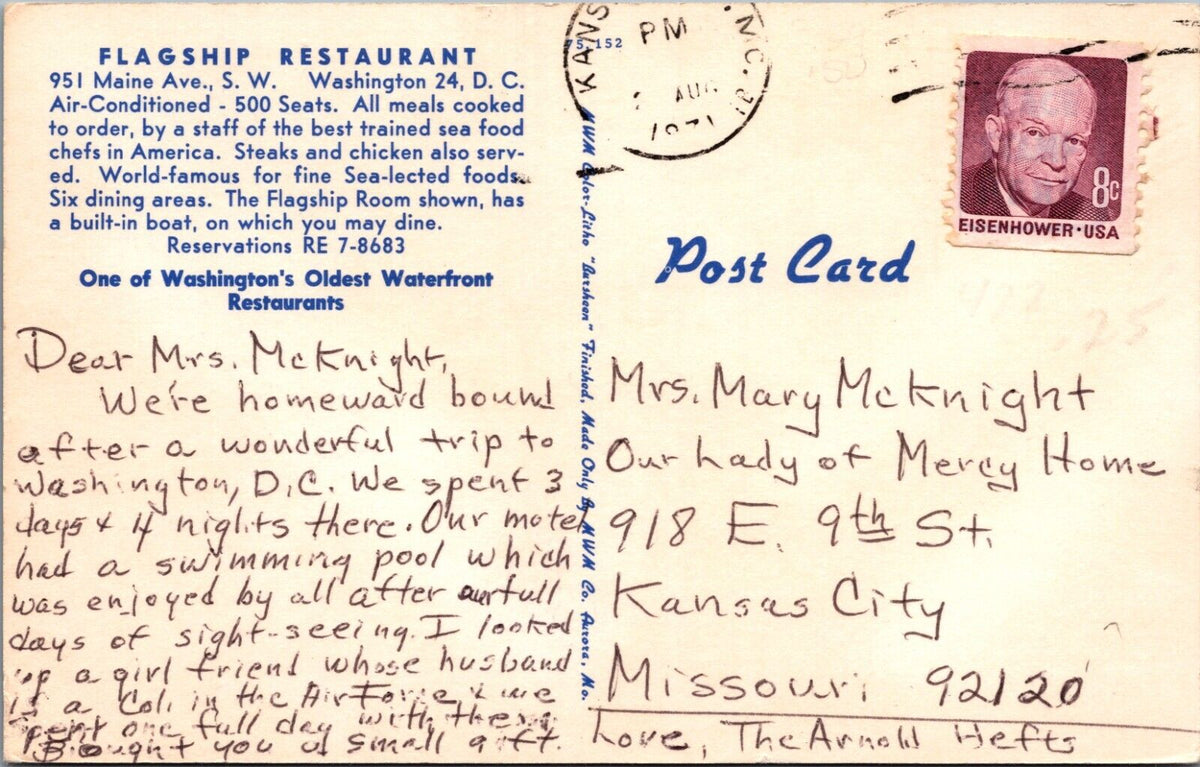 FLAGSHIP RESTAURANT
951 Maine Ave., S. W. Washington 24, D. C.
Air-Conditioned - 500 Seats. All meals cooked
to order, by a staff of the best trained sea food
chefs in America. Steaks and chicken also serv-
ed. World-famous for fine Sea-lected foods.
Six dining areas. The Flagship Room shown, has
a built-in boat, on which you may dine.
Reservations RE 7-8683
One of Washington's Oldest Waterfront
Restaurants
Dear Mrs. McKnight,
We're homeward bound
after a wonderful trip to
Washington, D.C. We spent 3
days & 4 nights there. Our motel
had a swimming pool which
was enjoyed by all after our full
days of sight-seeing. I looked
up a girl friend whose husband
is a Col. in the Air Force & we
spent one full day with them.
Brought you a small gift.
75,152
MWM Color-Litho "Bursheen" Finished, Made Only By MWM Co. Aurora, Mo.
KANS MO.
PM
AUG
1971
EISENHOWER·USA
8c
Post Card
Mrs. Mary McKnight
Our Lady of Mercy Home
918 E. 9th St.
Kansas City
Missouri 92120
Love, The Arnold Hefts